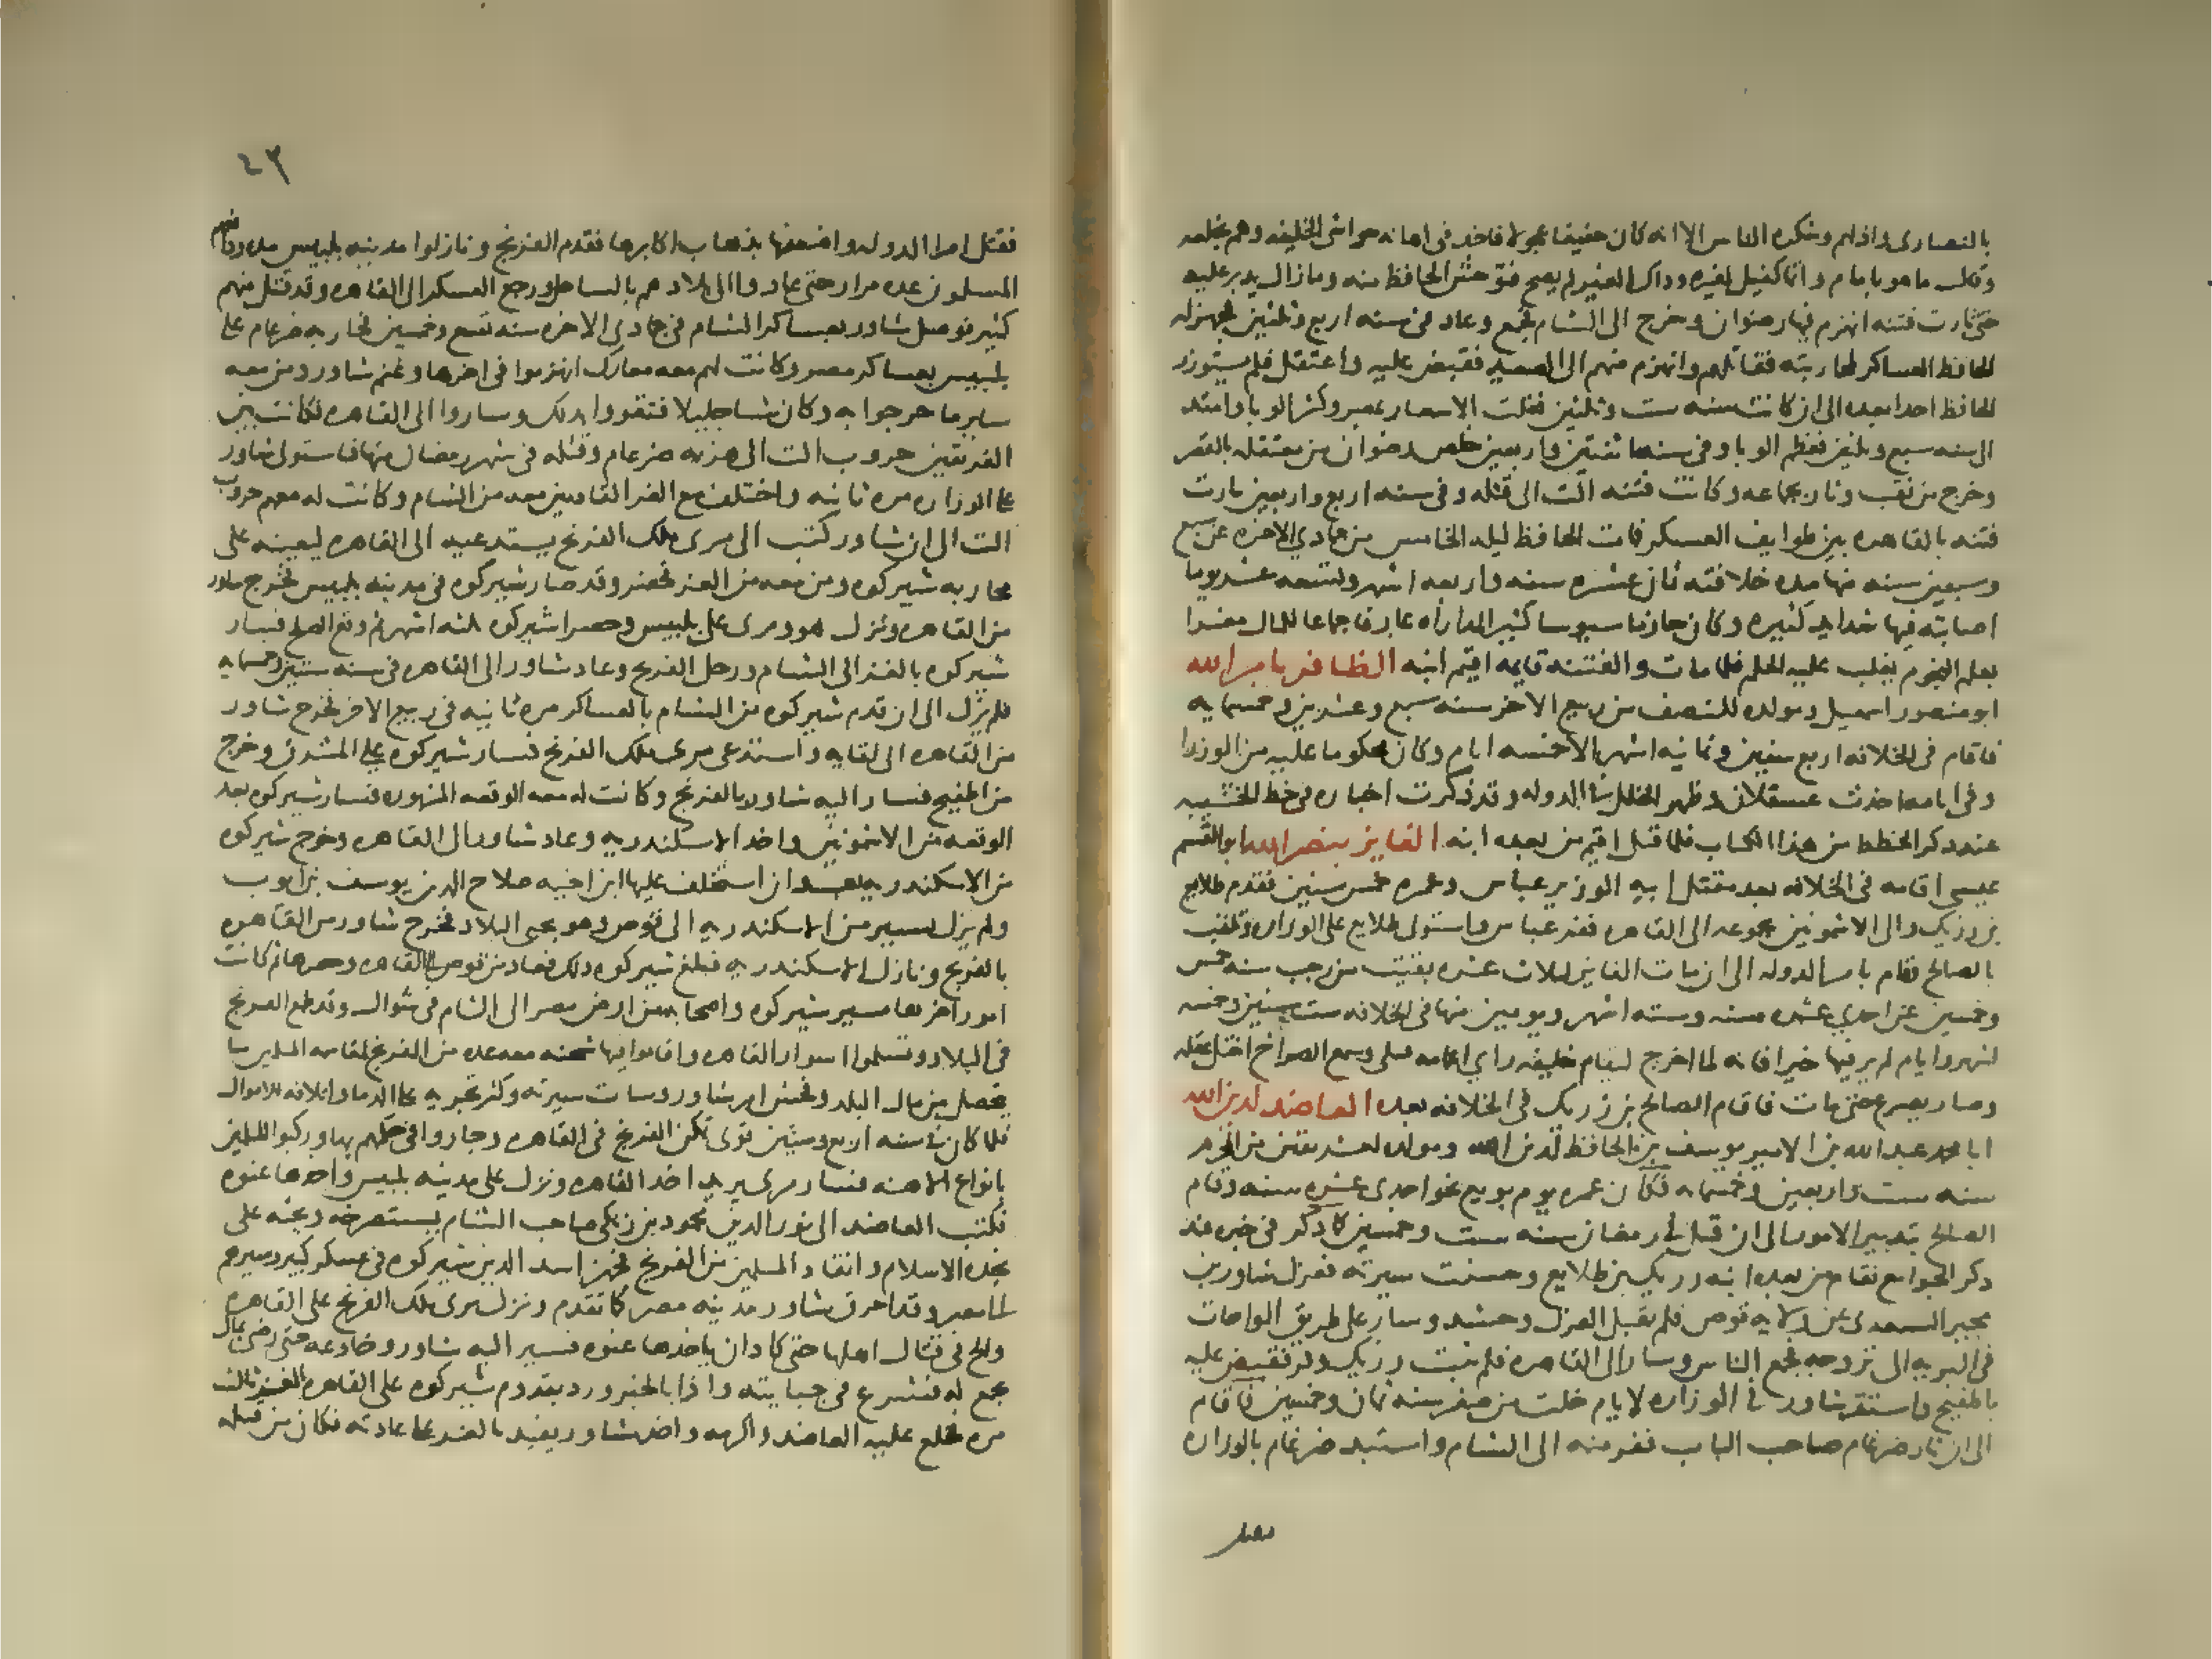 بالنصارى واذلهم وشكره الناس الا انه كان خفيفا عجولا فاخذ في اهانه حواشي الخليفه وهم بخلعه
وقال ما هو بامام وانما كفيل لغيره وذاك الغير لم يصح فتوحش الحافظ منه وما زال يدبر عليه
حتى ثارت فتنه انهزم فيها رضوان وخرج الى الشام فجمع وعاد في سنه اربع وثلثين فجهز له
الحافظ العساكر لمحاربته فقاتلهم وانهزم منهم الى الصعيد فقبض عليه واعتقل فلم يستوزر
الحافظ احدا بعده الى ان كانت سنه ست وثلثين فغلت الاسعار بمصر وكثر الوبا وامتد
الى سنه سبع وثلثين فعظم الوبا وفي سنه اثنتين واربعين خلص رضوان من معتقله بالقصر
وخرج من نقب وثار بجماعه وكانت فتنه الت الى قتله وفي سنه اربع واربعين ثارت
فتنه بالقاهره بين طوايف العسكر فمات الحافظ ليله الخامس من جمادي الاخره عن سبع
وسبعين سنه منها مده خلافته ثمان عشره سنه واربعه اشهر وتسعه عشر يوما
اصابته فيها شدايد كثيره وكان حازما سيوسا كثير المداراه عارفا جماعا للمال مغرا
بعلم النجوم يغلب عليه الحلم فلما مات والفتنه قايمه اقيم ابنه الظافر بامر الله
ابو منصور اسمعيل ومولده للنصف من ربيع الاخر سنه سبع وعشرين وخمسمايه
فاقام في الخلافه اربع سنين وثمانيه اشهر الا خمسه ايام وكان محكوما عليه من الوزرا
وفي ايامه اخذت عسقلان وظهر الخلل في الدوله وقد ذكرت اخباره في خط الخشيبه
عند ذكر الخطط من هذا الكتاب فلما قتل اقيم من بعده ابنه الفايز بنصر الله ابو القسم
عيسى اقامه في الخلافه بعد مقتل ابيه الوزير عباس وعمره خمس سنين فقدم طلايع
بن رزيك والى الاشمونين بجموعه الى القاهره ففر عباس واستولى طلايع على الوزاره وتلقب
بالصالح فقام بامر الدوله الى ان مات الفايز لثلاث عشره بقيت من رجب سنه خمس
وخمسين عن احدي عشره سنه وسته اشهر ويومين منها في الخلافه ست سنين وخمسه
اشهر وايام لم ير فيها خيرا فانه لما اخرج ليقام خليفه راي اعمامه قتلى وسمع الصراخ اختل عقله
وصار يصرع حتى مات فاقام الصالح بن رزيك في الخلافه بعده العاضد لدين الله
ابا محمد عبد الله بن الامير يوسف بن الحافظ لدين الله ومولده لعشر بقين من المحرم
سنه ست واربعين وخمسمايه فكان عمره يوم بويع نحو احدى عشره سنه وقام
الصالح بتدبير الامور الى ان قتل في رمضان سنه ست وخمسين كما ذكر في خبره عند
ذكر الجوامع فقام من بعده ابنه رزيك بن طلايع وحسنت سيرته فعزل شاور بن
مجير السعدى عن ولايه قوص فلم يقبل العزل وحشد وسار على طريق الواحات
في البريه الى تروجه فجمع الناس وسار الى القاهره فلم يثبت رزيك وفر فقبض عليه
باطفيح واستقر شاور في الوزاره لايام خلت من صفر سنه ثمان وخمسين فاقام
الى ان ثار ضرغام صاحب الباب ففر منه الى الشام واستبد ضرغام بالوزاره
فقتل
٤٢
فقتل امرا الدوله واضعفها بذهاب اكابرها فقدم الفرنج ونازلوا مدينه بلبيس مده ودافعهم
المسلمون عده مرار حتى عادوا الى بلادهم بالساحل ورجع العسكر الى القاهره وقد قتل منهم
كثير فوصل شاور بعساكر الشام في جمادى الاخره سنه تسع وخمسين فحاربه ضرغام على
بلبيس بعساكر مصر وكانت لهم معه معارك انهزموا في اخرها وغنم شاور ومن معه
ساير ما خرجوا به وكان شيا جليلا فتقووا بذلك وساروا الى القاهره فكانت بين
الفريقين حروب الت الى هزيمه ضرغام وقتله في شهر رمضان منها فاستولى شاور
على الوزاره مره ثانيه واختلف مع الغز القادمين معه من الشام وكانت له معهم حروب
الت الى ان شاور كتب الى مرى ملك الفرنج يستدعيه الى القاهره ليعينه على
محاربه شيركوه ومن معه من الغز فحضر وقد صار شيركوه في مدينه بلبيس فخرج شاور
من القاهره ونزل هو ومرى على بلبيس وحصرا شيركوه ثلثه اشهر ثم وقع الصلح فسار
شيركوه بالغز الى الشام ورحل الفرنج وعاد شاور الى القاهره في سنه ستين وخمسمايه
فلم يزل الى ان قدم شيركوه من الشام بالعساكر مره ثانيه في ربيع الاخر فخرج شاور
من القاهره الى لقايه واستدعى مرى ملك الفرنج فسار شيركوه على الشرق وخرج
من اطفيح فسار اليه شاور بالفرنج وكانت له معه الوقعه المشهوره فسار شيركوه بعد
الوقعه من الاشمونين واخذ الاسكندريه وعاد شاور الى القاهره وخرج شيركوه
من الاسكندريه بعد ان استخلف عليها ابن اخيه صلاح الدين يوسف بن ايوب
ولم يزل يسير من الاسكندريه الى قوص وهو يجبى البلاد فخرج شاور من القاهره
بالفرنج ونازل الاسكندريه فبلغ شيركوه ذلك فعاد من قوص الى القاهره وحصرها ثم كانت
امور اخرها مسير شيركوه واصحابه من ارض مصر الى الشام في شوال وقد طمع الفرنج
في البلاد وتسلموا اسوار القاهره واقاموا فيها شحنه معه عده من الفرنج لمقاسمه المسلمين ما
يتحصل من مال البلد وفحش امر شاور وسات سيرته وكثر تجريه على الدما واتلافه للاموال
فلما كان في سنه اربع وستين قوى تمكن الفرنج في القاهره وجاروا في حكمهم بها وركبوا المسلمين
بانواع الاهنه فسار مرى يريد اخذ القاهره ونزل على مدينه بلبيس واخذها عنوه
فكتب العاضد الى نور الدين محمود بن زنكى صاحب الشام يستصرخه ويحثه على
نجده الاسلام وانقاذ المسلمين من الفرنج فجهز اسد الدين شيركوه في عسكر كبير وسيرهم
الى مصر وقد احرق شاور مدينه مصر كما تقدم ونزل مرى ملك الفرنج على القاهره
والح في قتال اهلها حتى كاد ان ياخذها عنوه فسير اليه شاور وخادعه حتى رضى بمال
يجمع له فشرع في جبايته واذا بالخبر ورد بقدوم شيركوه على القاهره ثالث
مره فخلع عليه العاضد واكرمه واخذ شاور يفيد بالغدر على عادته فكان من قتله